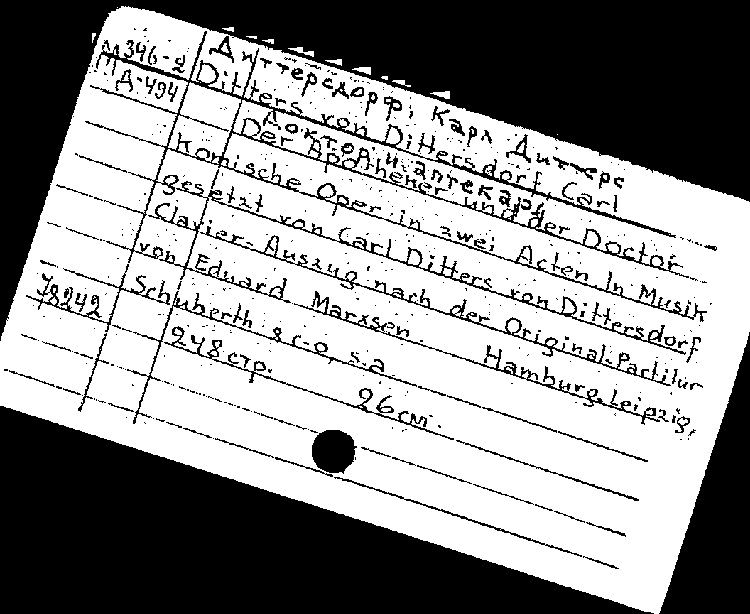 М 346-2
Д-494
Диттерсдорф, Карл Диттерс
Ditters von Dittersdorf, Carl
Доктор и аптекарь
Der Apotheker und der Doctor
Komische Oper in zwei Acten In Musik
gesetzt von Carl Ditters von Dittersdorf
Clavier-Auszug nach der Original-Partitur
von Eduard Marxsen. Hamburg, Leipzig,
Schuberth & C-o, s.a
248 стр. 26 см.
78242